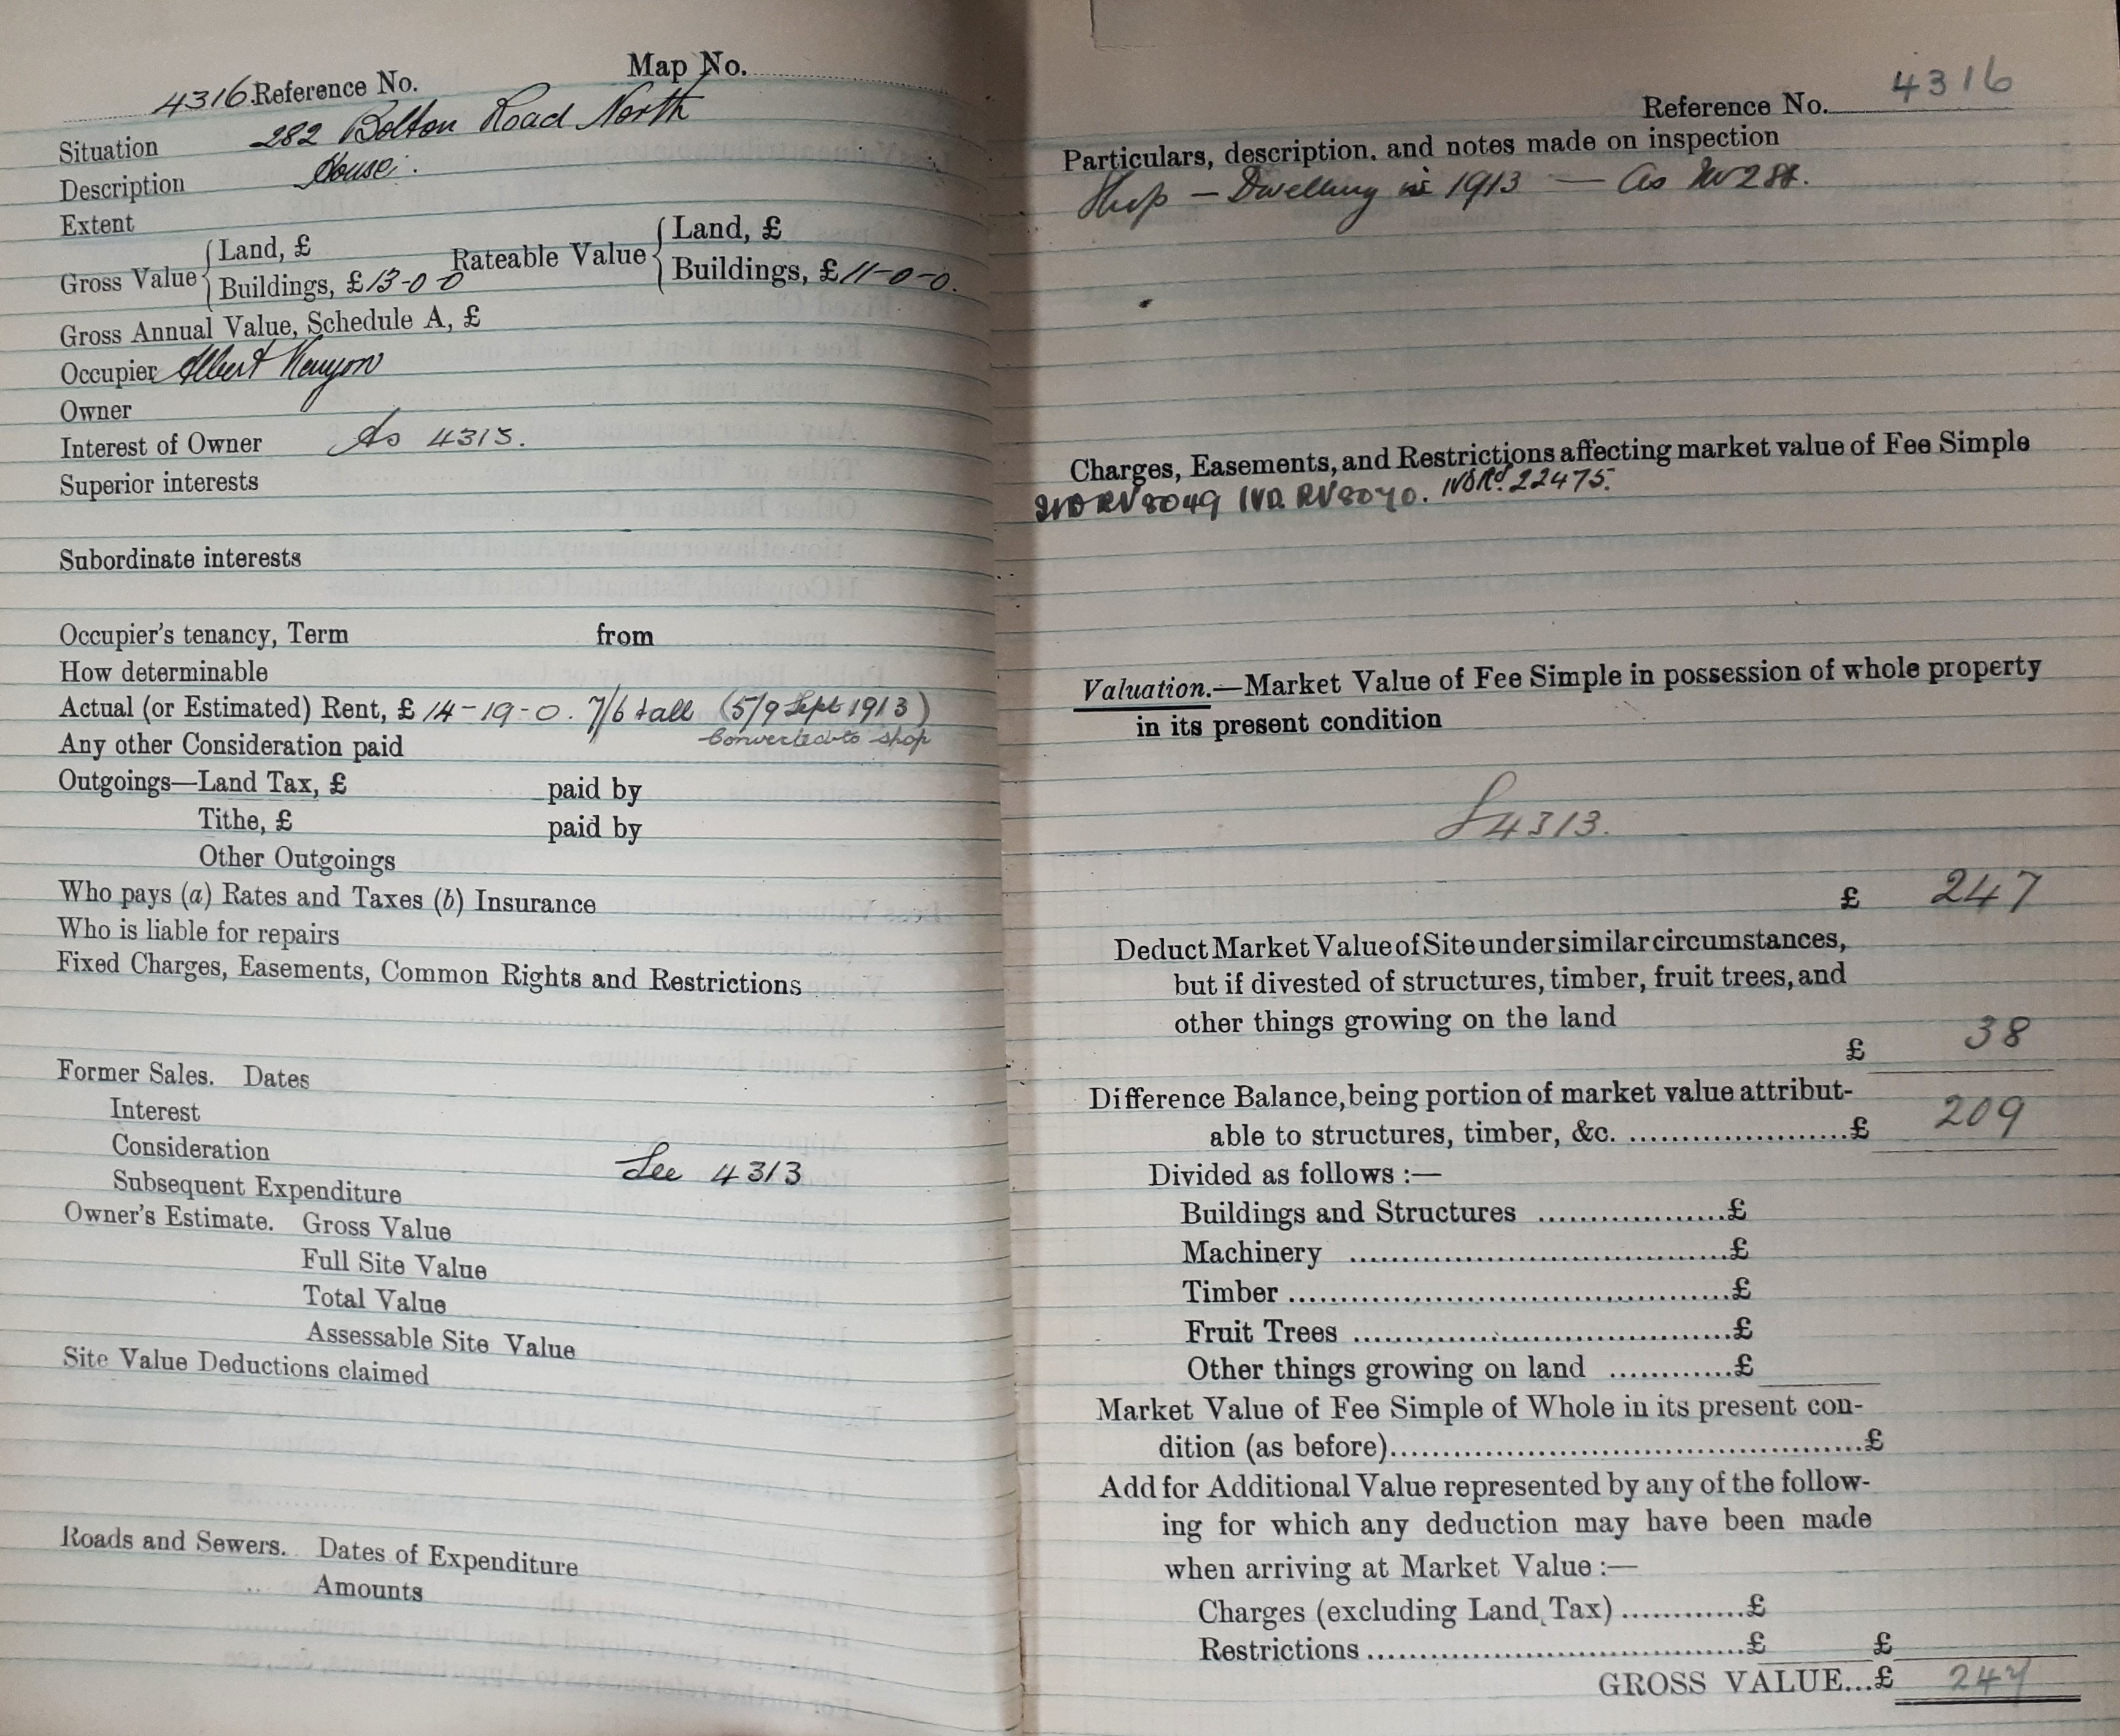 Map No.
4316 Reference No.
Situation 282 Bolton Road North
Description House.
Extent
Gross Value { Land, £ Rateable Value { Land, £
Buildings, £ 13-0-0 Buildings, £ 11-0-0.
Gross Annual Value, Schedule A, £
Occupier Albert Kenyon
Owner
Interest of Owner As 4313.
Superior interests
Subordinate interests
Occupier's tenancy, Term from
How determinable
Actual (or Estimated) Rent, £ 14-19-0. 7/6 + all (5/9 Sept 1913)
Converted to shop
Any other Consideration paid
Outgoings—Land Tax, £ paid by
Tithe, £ paid by
Other Outgoings
Who pays (a) Rates and Taxes (b) Insurance
Who is liable for repairs
Fixed Charges, Easements, Common Rights and Restrictions
Former Sales. Dates
Interest
Consideration
See 4313
Subsequent Expenditure
Owner's Estimate. Gross Value
Full Site Value
Total Value
Assessable Site Value
Site Value Deductions claimed
Roads and Sewers. Dates of Expenditure
Amounts
Reference No. 4316
Particulars, description, and notes made on inspection
Shop — Dwelling in 1913 — As
Charges, Easements, and Restrictions affecting market value of Fee Simple
RV 8049 IVD. RV 8070. 22475.
Valuation.—Market Value of Fee Simple in possession of whole property
in its present condition
4313.
£ 247
Deduct Market Value of Site under similar circumstances,
but if divested of structures, timber, fruit trees, and
other things growing on the land
£ 38
Difference Balance, being portion of market value attribut-
able to structures, timber, &c. ......................£ 209
Divided as follows :—
Buildings and Structures ..................£
Machinery ....................................£
Timber ..........................................£
Fruit Trees ....................................£
Other things growing on land ............£
Market Value of Fee Simple of Whole in its present con-
dition (as before)............................................£
Add for Additional Value represented by any of the follow-
ing for which any deduction may have been made
when arriving at Market Value :—
Charges (excluding Land Tax) ............£
Restrictions ....................................£ £
GROSS VALUE...£ 247